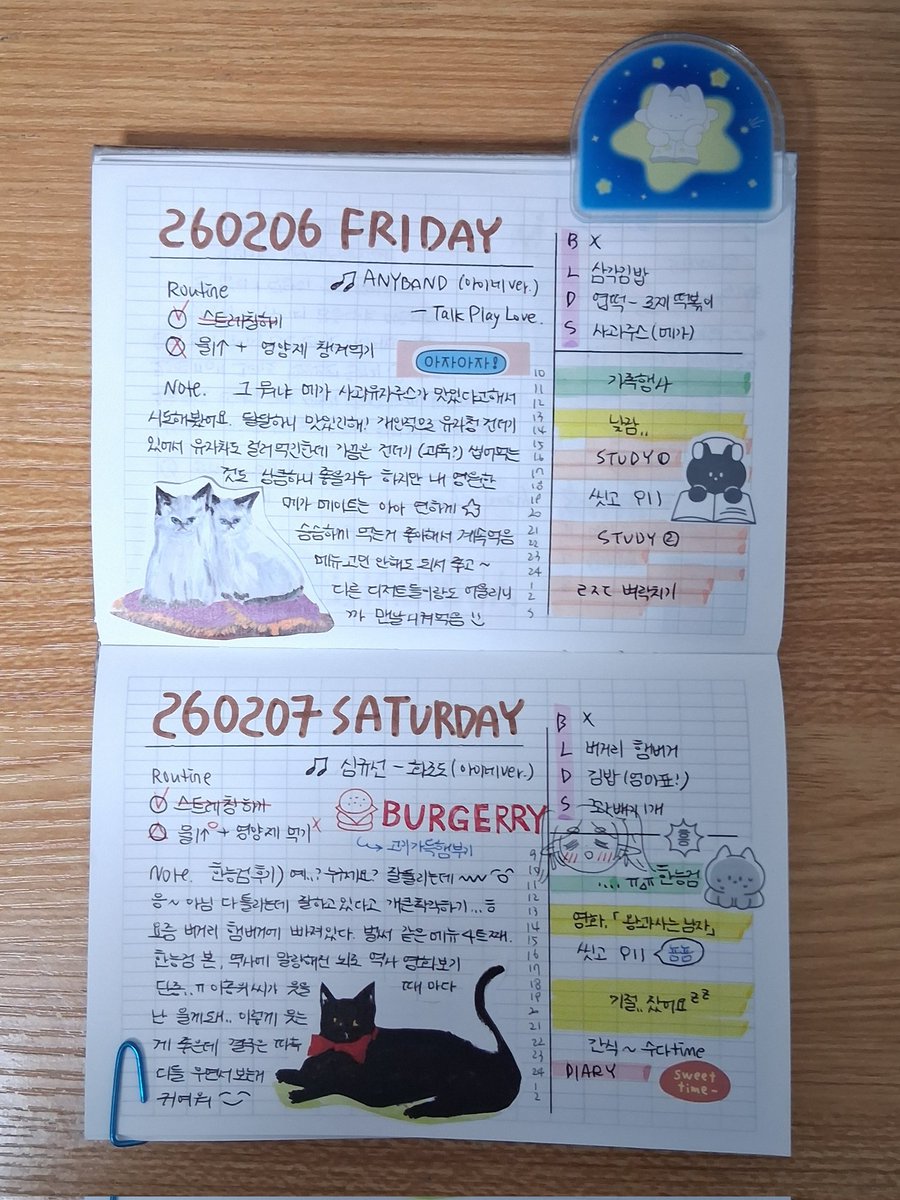 260206 FRIDAY
♫ ANYBAND (아이비 ver.)
- Talk Play Love.
Routine
스트레칭하기
물↑ + 영양제 챙겨먹기
아자아자!
Note. 그 뭐냐 메가 사과유자주스가 맛있다고해서
시도해봤어요. 달달하니 맛있긴해! 개인적으로 유자청 건더기
있어서 유자차도 걸러먹긴한데 가끔은 건더기 (과육?) 씹어먹는
것도 상큼하니 좋을지두 하지만 내 영원한
메가 메이트는 아아 연하게 ☆
슴슴하게 먹는거 좋아해서 계속먹음
메뉴고민 안해도 되서 좋고 ~
다른 디저트들이랑도 어울리니
까 맨날 시켜먹음
B X
L 삼각김밥
D 엽떡 - 로제떡볶이
S 사과주스 (메가)
10
11
12
13
14
15
16
17
18
19
20
21
22
23
24
1
2
3
가족행사
낮잠..
STUDY ①
씻고 PII
STUDY ②
ㄹㅈㄷ 벼락치기
260207 SATURDAY
♫ 심규선 - 화조도 (아이비 ver.)
Routine
스트레칭하기
물↑ + 영양제 먹기
BURGERRY
고기가득햄부기
Note. 한능검후기) 예..? 누구세요? 잘틀리는데
응~ 아님 다틀리는데 잘하고있다고 개큰착각하기...ㅎ
요즘 버거리 햄버거에 빠져있다. 벌써 같은메뉴 4트째.
한능검 본, 역사에 말랑해진 뇌로 역사 영화보기
단종..ㅠ 이홍위씨가 웃을 때 마다
난 울게돼.. 이렇게 웃는
게 좋은데 결국은
다들 우면서 보는게
귀여워
B X
L 버거리 햄버거
D 김밥 (엄마표!)
S 꽈배기 1개
흥
9
10
11
12
13
14
15
16
17
18
19
20
21
22
23
24
1
2
.... ㅠㅠ 한능검
영화, 「왕과사는남자」
씻고 PII
기절.. 잤어요 zz
간식 ~ 수다time
DIARY
sweet
time-